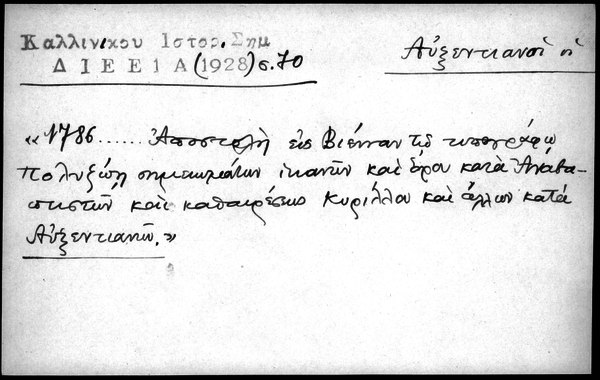 Καλλινικου Ιστορ. Σημ
Δ Ι Ε Ε Ι Α (1928) σ. 70
Αὐξεντιανοὶ οἱ
«1786...... Ἀποστολὴ εἰς Βιέννην τῷ τυπογράφῳ
Πολυζώῃ σημειωμάτων ἱκανῶν καὶ ὅρου κατὰ Ἀναβα-
πτιστῶν καὶ καθαιρέσεως Κυρίλλου καὶ ἄλλων κατὰ
Αὐξεντιανῶν.»